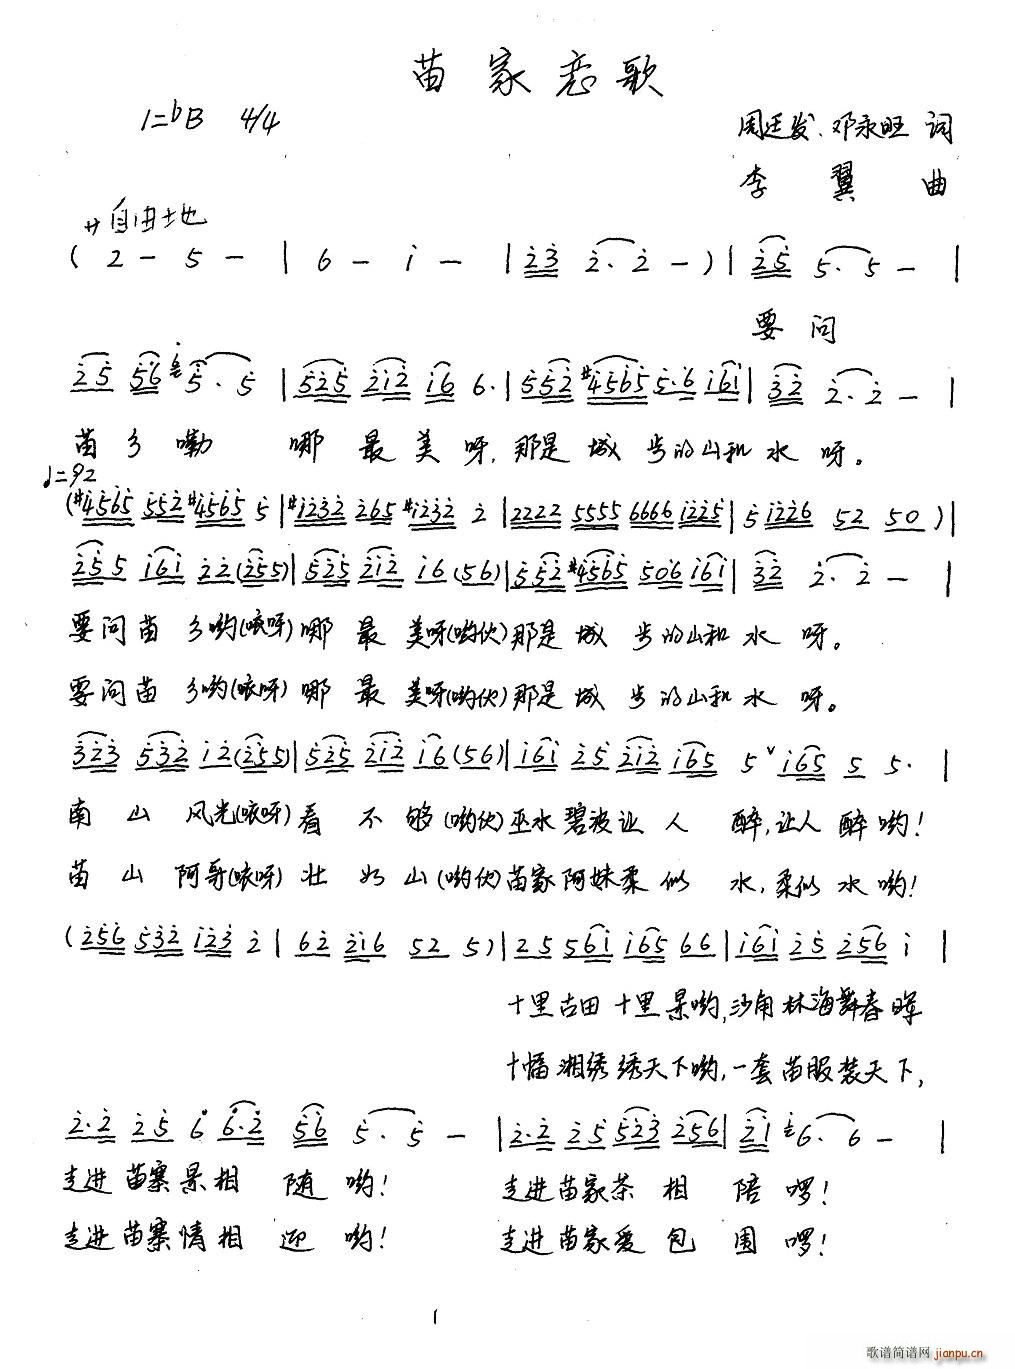 苗家恋歌
1=♭B 4/4
周廷发、邓永旺 词
李翼 曲
サ自由地
( 2 - 5 - | 6 - i - | 2 3 2 · 2 - ) | 2 5 5 · 5 - |
要问
2 5 5 6 6 5 · 5 | 5 2 5 2 1 2 1 6 6 · | 5 5 2 #4 5 6 5 5 · 6 1 6 1 | 3 2 2 · 2 - |
苗乡嘞 哪最美呀,那是城步的山和水呀。
♩=92
( #4 5 6 5 5 5 2 #4 5 6 5 5 | #1 2 3 2 2 6 5 #1 2 3 2 2 | 2222 5555 6666 1225 | 5 1226 52 50 ) |
2 5 5 1 6 1 2 2 (2 5 5) | 5 2 5 2 1 2 1 6 (5 6) | 5 5 2 #4 5 6 5 5 0 6 1 6 1 | 3 2 2 · 2 - |
要问苗乡哟(咳呀)哪最美呀(哟伙)那是城步的山和水呀。
要问苗乡哟(咳呀)哪最美呀(哟伙)那是城步的山和水呀。
3 2 3 5 3 2 1 2 (2 5 5) | 5 2 5 2 1 2 1 6 (5 6) | 1 6 1 2 5 2 1 2 1 6 5 5 ˅ 1 6 5 5 5 · |
南山风光(咳呀)看不够(哟伙)巫水碧波让人醉,让人醉哟!
苗山阿哥(咳呀)壮如山(哟伙)苗家阿妹柔似水,柔似水哟!
( 2 5 6 5 3 2 1 2 3 2 | 6 2 2 1 6 5 2 5 ) | 2 5 5 6 1 1 6 5 6 6 | 1 6 1 2 5 2 5 6 1 |
十里古田十里景哟,沙角林海舞春晖
十幅湘绣绣天下哟,一套苗服装天下,
2 · 2 2 5 6 6 · 2 5 6 5 · 5 - | 2 · 2 2 5 5 2 3 2 5 6 | 2 1 6 · 6 - |
走进苗寨景相随哟! 走进苗家茶相陪啰!
走进苗寨情相迎哟! 走进苗家爱包围啰!
1
歌谱简谱网 jianpu.cn